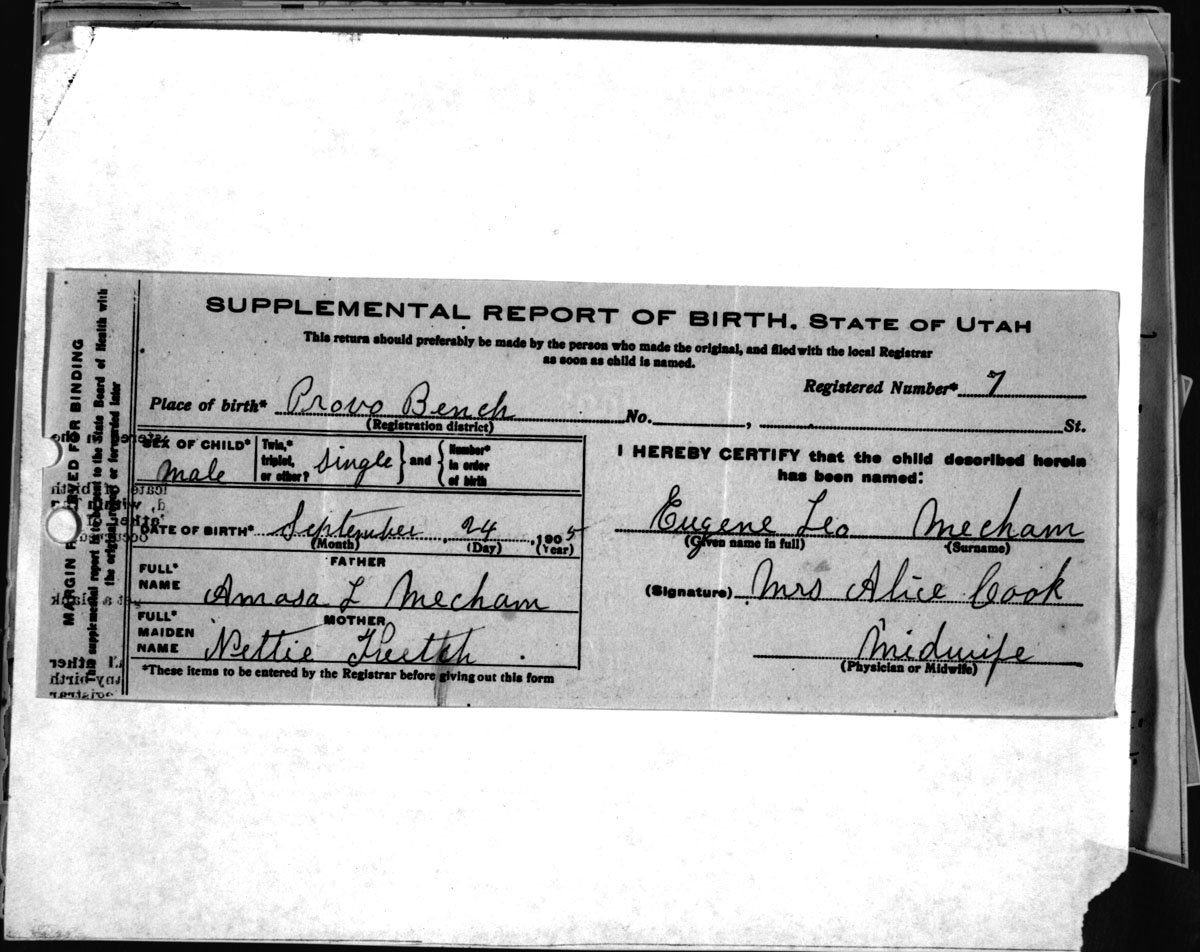 SUPPLEMENTAL REPORT OF BIRTH. STATE OF UTAH
This return should preferably be made by the person who made the original, and filed with the local Registrar
as soon as child is named.
Registered Number* 7
Place of birth* Provo Bench No. , St.
(Registration district)
SEX OF CHILD* male
Twin,* triplet, or other? single } and { Number* in order of birth
DATE OF BIRTH* September , 24 , 1905
(Month) (Day) (Year)
FATHER
FULL* NAME Amasa L Mecham
MOTHER
FULL* MAIDEN NAME Nettie Keetch
*These items to be entered by the Registrar before giving out this form
I HEREBY CERTIFY that the child described herein
has been named:
Eugene Leo Mecham
(Given name in full) (Surname)
(Signature) Mrs Alice Cook
Midwife
(Physician or Midwife)
MARGIN RESERVED FOR BINDING
This supplemental report is to be sent to the State Board of Health with
the original, or forwarded later